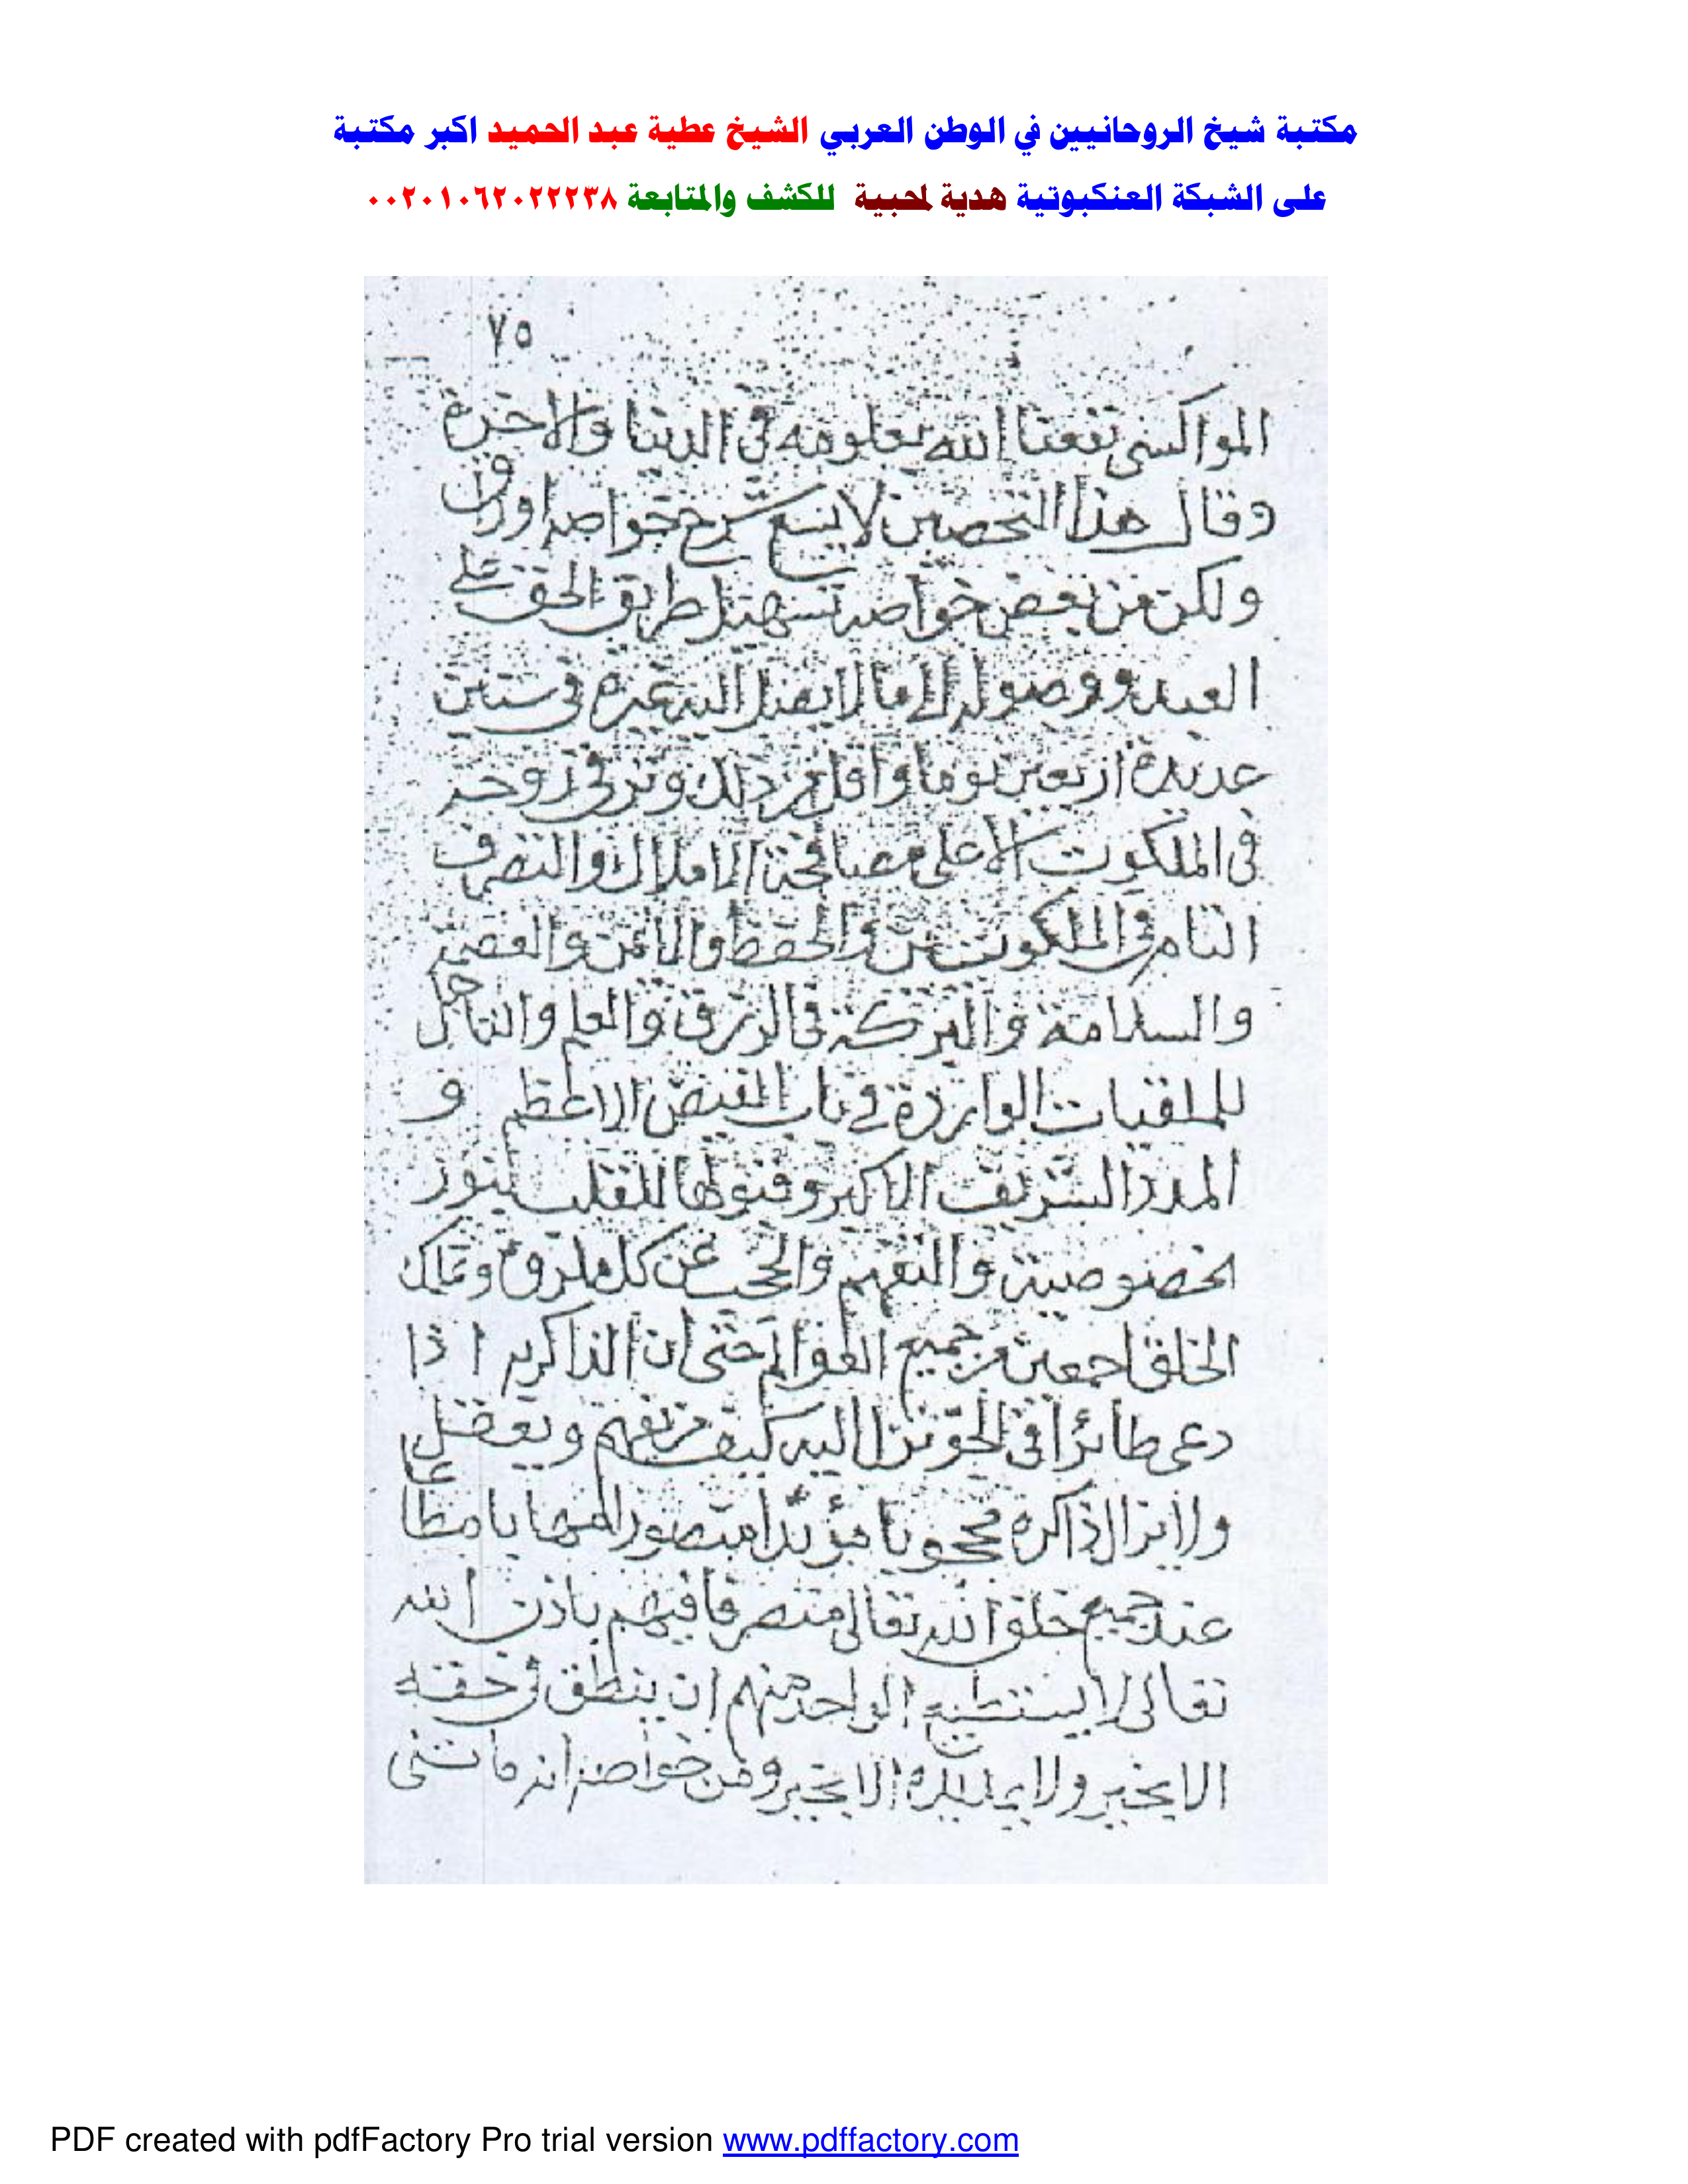 مكتبة شيخ الروحانيين في الوطن العربي الشيخ عطية عبد الحميد اكبر مكتبة
على الشبكة العنكبوتية هدية لمحبية للكشف والمتابعة ٠٠٢٠١٠٦٢٠٢٢٢٣٨
٧٥
المواكسى نفعنا الله بعلومه في الدنيا والاخرة
وقال هذا التحصين لا يسع شرح خواصه اوراق
ولكن من بعض خواصه تسهيل طريق الحق على
العبد ووصوله الى ما لا يصل اليه غيره في سنين
عديدة اربعين يوما واقل من ذلك وترقى روحه
في الملكوت الاعلى مصافحة الاملاك والتصرف
التام في الملكوت والحفظ والامن والعصمة
والسلامة والبركة في الرزق والعلم والتأهل
للملقيات الواردة في باب الفيض الاعظم و
المدد الشريف الاكبر وقبولها للقلب بنور
خصوصية والتفهم والحجب عن كل وتملك
الخلق اجمعين من جميع العوالم حتى ان الذاكر به اذا
دعى طائرا في الجو نزل اليه كيف من يفهم ويعقل
ولا يزال ذاكره محجوبا مؤيدا منصورا مهابا مطاعا
عند جميع خلق الله تعالى متصرفا فيهم باذن الله
تعالى لا يستطيع الواحد منهم ان ينطق في حقه
الا بخير ولا يمد يده الا بخير ومن خواصه انه ما
PDF created with pdfFactory Pro trial version www.pdffactory.com